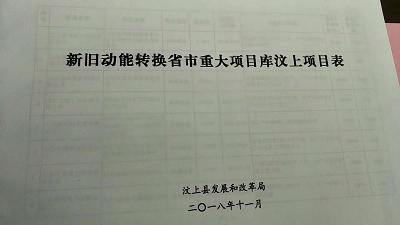 新旧动能转换省市重大项目库汶上项目表
汶上县发展和改革局
二〇一八年十一月